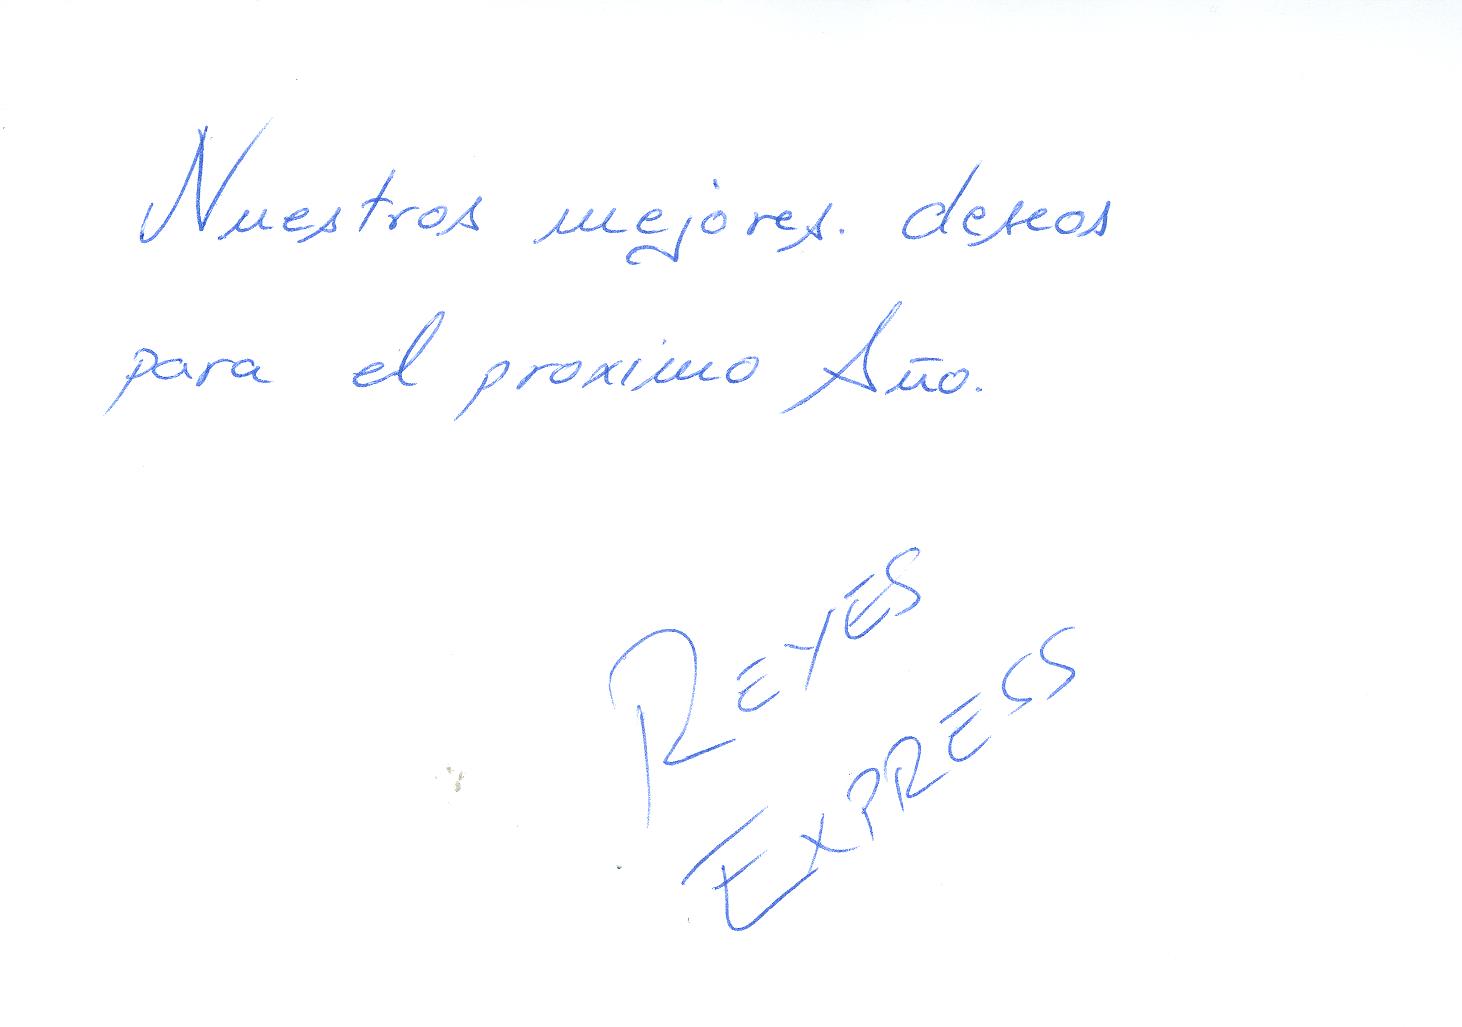 Nuestros mejores. deseos
para el proximo Año.
REYES
EXPRESS